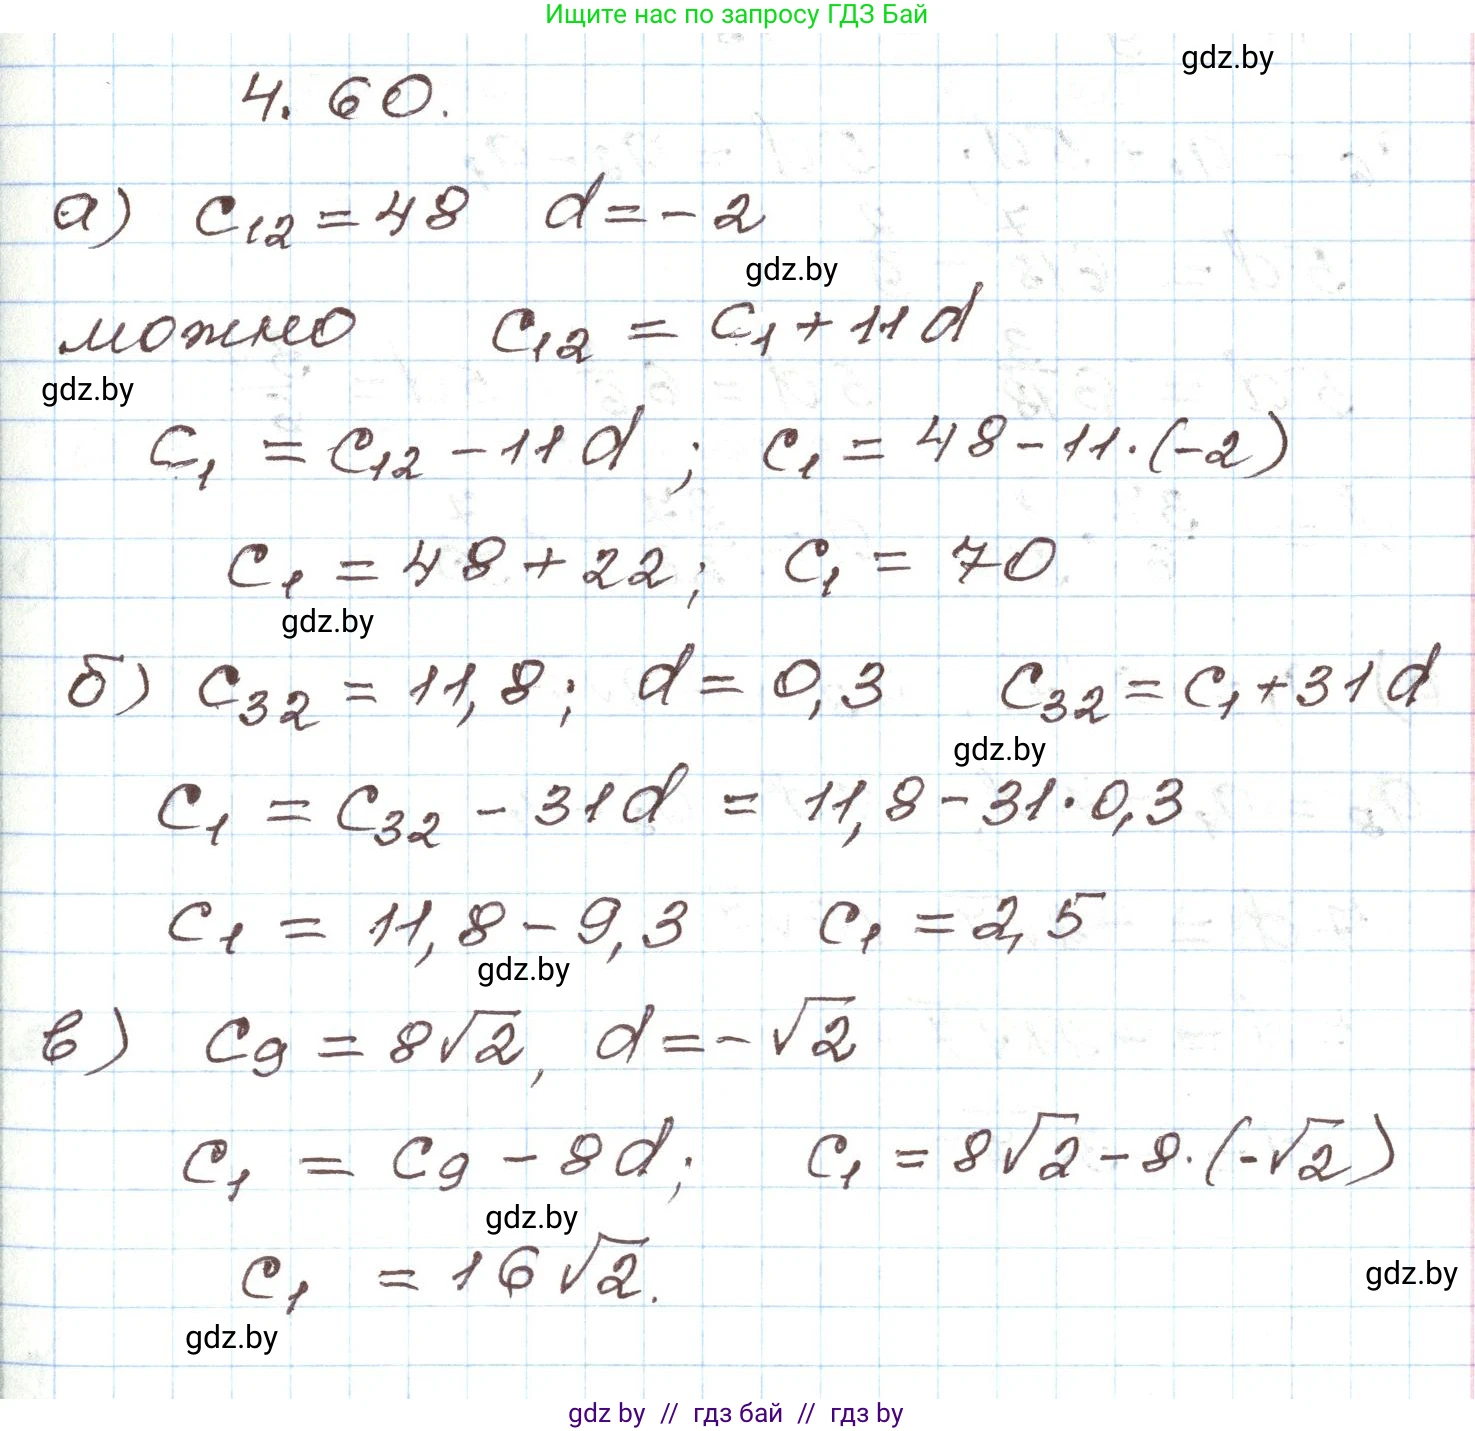 Ищите нас по запросу ГДЗ Бай
gdz.by
4.60.
а) c₁₂ = 48 d = -2
gdz.by
можно c₁₂ = c₁ + 11d
gdz.by
c₁ = c₁₂ - 11d ; c₁ = 48 - 11·(-2)
c₁ = 48 + 22; c₁ = 70
gdz.by
б) c₃₂ = 11,8; d = 0,3 c₃₂ = c₁ + 31d
gdz.by
c₁ = c₃₂ - 31d = 11,8 - 31·0,3
c₁ = 11,8 - 9,3 c₁ = 2,5
gdz.by
в) c₉ = 8√2, d = -√2
c₁ = c₉ - 8d; c₁ = 8√2 - 8·(-√2)
gdz.by
c₁ = 16√2.
gdz.by
gdz.by
gdz by // гдз бай // гдз by